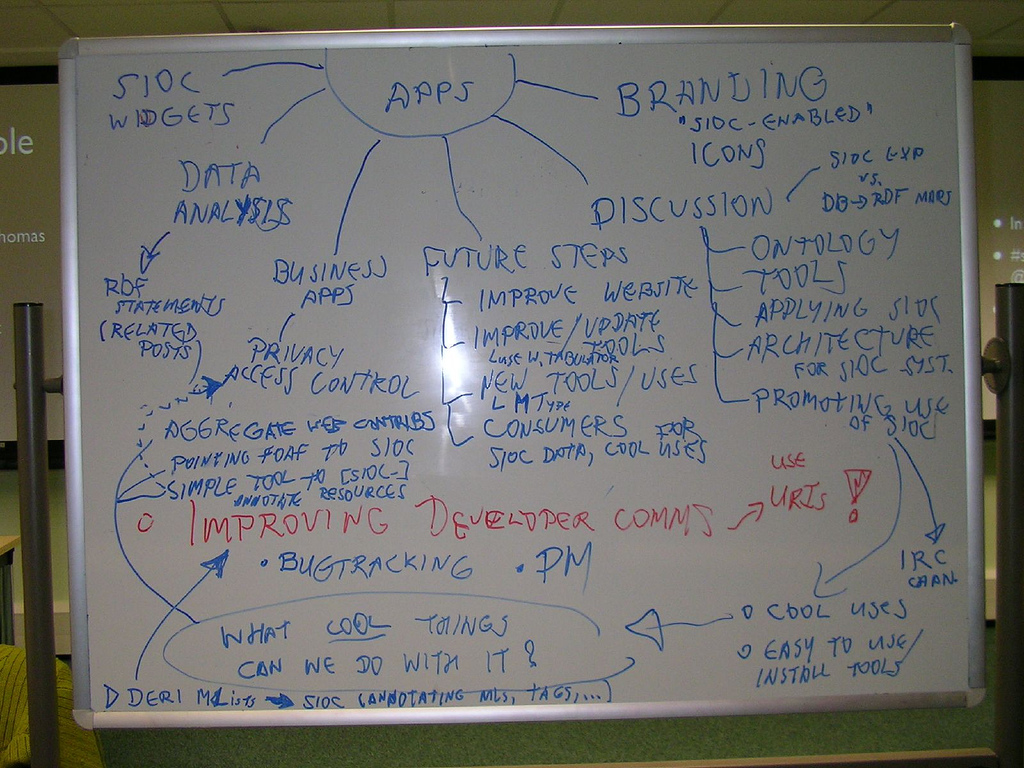 SIOC
WIDGETS
APPS
BRANDING
"SIOC-ENABLED"
ICONS
DATA
ANALYSIS
RDF
STATEMENTS
(RELATED
POSTS)
BUSINESS
APPS
PRIVACY
ACCESS CONTROL
FUTURE STEPS
IMPROVE WEBSITE
IMPROVE/UPDATE
TOOLS
USE W. TABULATOR
NEW TOOLS/USES
CONSUMERS FOR
SIOC DATA, COOL USES
DISCUSSION
SIOC EXP
vs.
DB→RDF MAPS
ONTOLOGY
TOOLS
APPLYING SIOC
ARCHITECTURE
FOR SIOC SYST.
PROMOTING USE
OF SIOC
AGGREGATE WEB CONTRIBS
POINTING FOAF TO SIOC
SIMPLE TOOL TO [SIOC-]
ANNOTATE RESOURCES
O IMPROVING DEVELOPER COMMS → USE
URIs !
• BUGTRACKING • PM
IRC
CHAN.
O COOL USES
O EASY TO USE/
INSTALL TOOLS
WHAT COOL THINGS
CAN WE DO WITH IT?
DERI MLists → SIOC (ANNOTATING MLS, TAGS,...)
ple
homas
• In
• #s
@